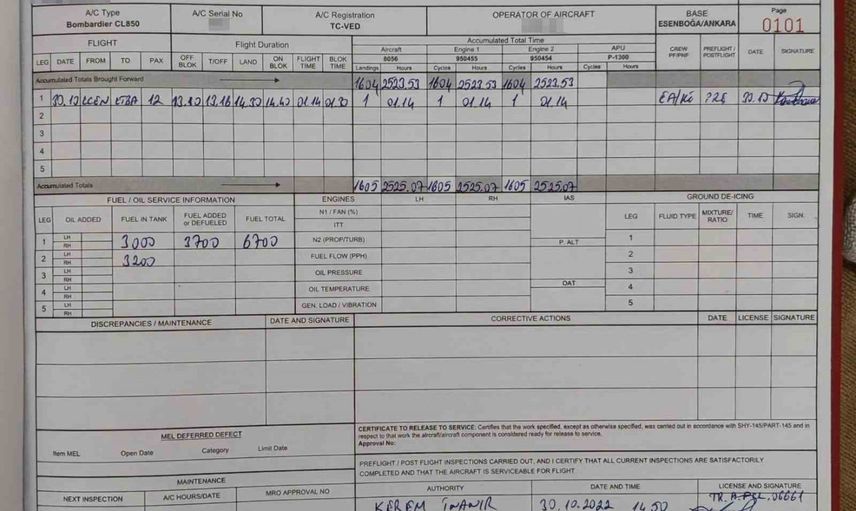 A/C Type
Bombardier CL850
A/C Serial No
A/C Registration
TC-VED
OPERATOR OF AIRCRAFT
BASE
ESENBOĞA/ANKARA
Page
0101
FLIGHT
Flight Duration
Accumulated Total Time
Aircraft Engine 1 Engine 2 APU
8056 950455 950454 P-1300
LEG DATE FROM TO PAX OFF BLOK T/OFF LAND ON BLOK FLIGHT TIME BLOK TIME Landings Hours Cycles Hours Cycles Hours Cycles Hours CREW PF/PNF PREFLIGHT / POSTFLIGHT DATE SIGNATURE
Accumulated Totals Brought Forward 1604 2523.53 1604 2523.53 1604 2523.53
1 30.10 LCEN LTBA 12 13.10 13.16 14.30 14.40 01.14 01.30 1 01.14 1 01.14 1 01.14 PRE 30.10
2
3
4
5
Accumulated Totals 1605 2525.07 1605 2525.07 1605 2525.07
FUEL / OIL SERVICE INFORMATION
LEG OIL ADDED FUEL IN TANK FUEL ADDED or DEFUELED FUEL TOTAL
1 LH RH 3000 3700 6700
2 LH RH 3200
3 LH RH
4 LH RH
5 LH RH
ENGINES LH RH IAS
N1 / FAN (%)
ITT
N2 (PROP/TURB) P. ALT
FUEL FLOW (PPH)
OIL PRESSURE
OIL TEMPERATURE OAT
GEN. LOAD / VIBRATION
GROUND DE-ICING
LEG FLUID TYPE MIXTURE/ RATIO TIME SIGN.
1
2
3
4
5
DISCREPANCIES / MAINTENANCE DATE AND SIGNATURE CORRECTIVE ACTIONS DATE LICENSE SIGNATURE
MEL DEFERRED DEFECT
Item MEL Open Date Category Limit Date
CERTIFICATE TO RELEASE TO SERVICE: Certifies that the work specified, except as otherwise specified, was carried out in accordance with SHY-145/PART-145 and in
respect to that work the aircraft/aircraft component is considered ready for release to service.
Approval No:
PREFLIGHT / POST FLIGHT INSPECTIONS CARRIED OUT, AND I CERTIFY THAT ALL CURRENT INSPECTIONS ARE SATISFACTORILY
COMPLETED AND THAT THE AIRCRAFT IS SERVICEABLE FOR FLIGHT
MAINTENANCE
NEXT INSPECTION A/C HOURS/DATE MRO APPROVAL NO
AUTHORITY DATE AND TIME LICENSE AND SIGNATURE
KEREM İNANIR 30.10.2022 14.50